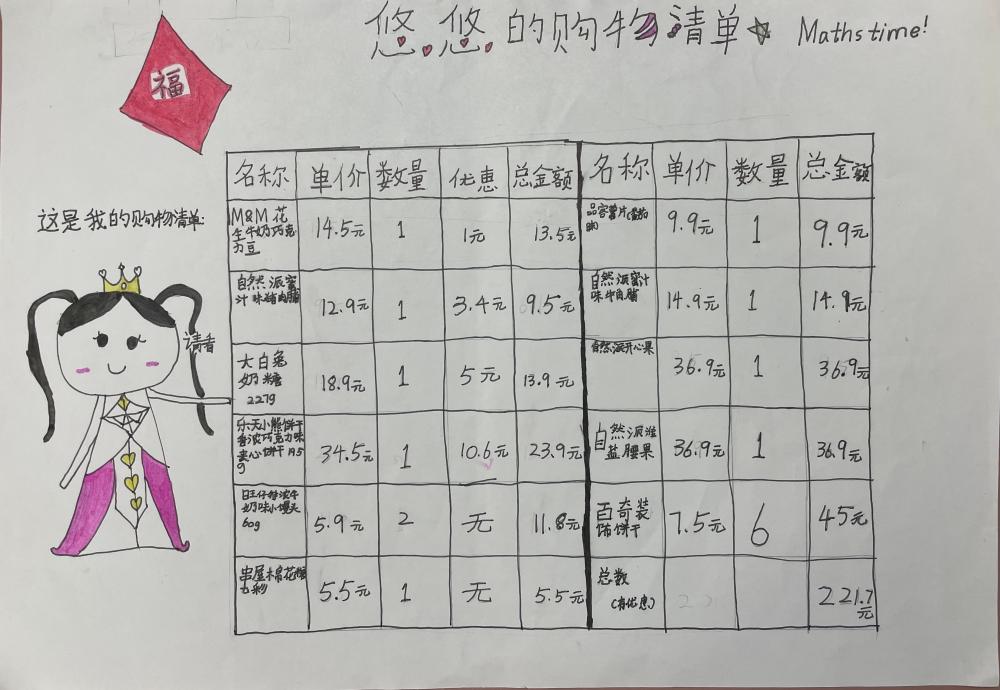 悠悠的购物清单 Maths time!
福
这是我的购物清单:
请看
名称 单价 数量 优惠 总金额 名称 单价 数量 总金额
M&M花
生牛奶巧克
力豆
14.5元 1 1元 13.5元
品客薯片(番茄
9.9元 1 9.9元
自然派蜜
汁味猪肉脯
12.9元 1 3.4元 9.5元
自然派蜜汁
味牛肉脯
14.9元 1 14.9元
大白兔
奶糖
227g
18.9元 1 5元 13.9元
自然派开心果
36.9元 1 36.9元
乐天小熊饼干
香浓巧克力味
夹心饼干195
g
34.5元 1 10.6元 23.9元
自然派淮
盐腰果
36.9元 1 36.9元
旺仔特浓牛
奶味小馒头
60g
5.9元 2 无 11.8元
百奇装
饰饼干
7.5元 6 45元
串屋棉花糖
七彩
5.5元 1 无 5.5元
总数
(有优惠)
221.7
元